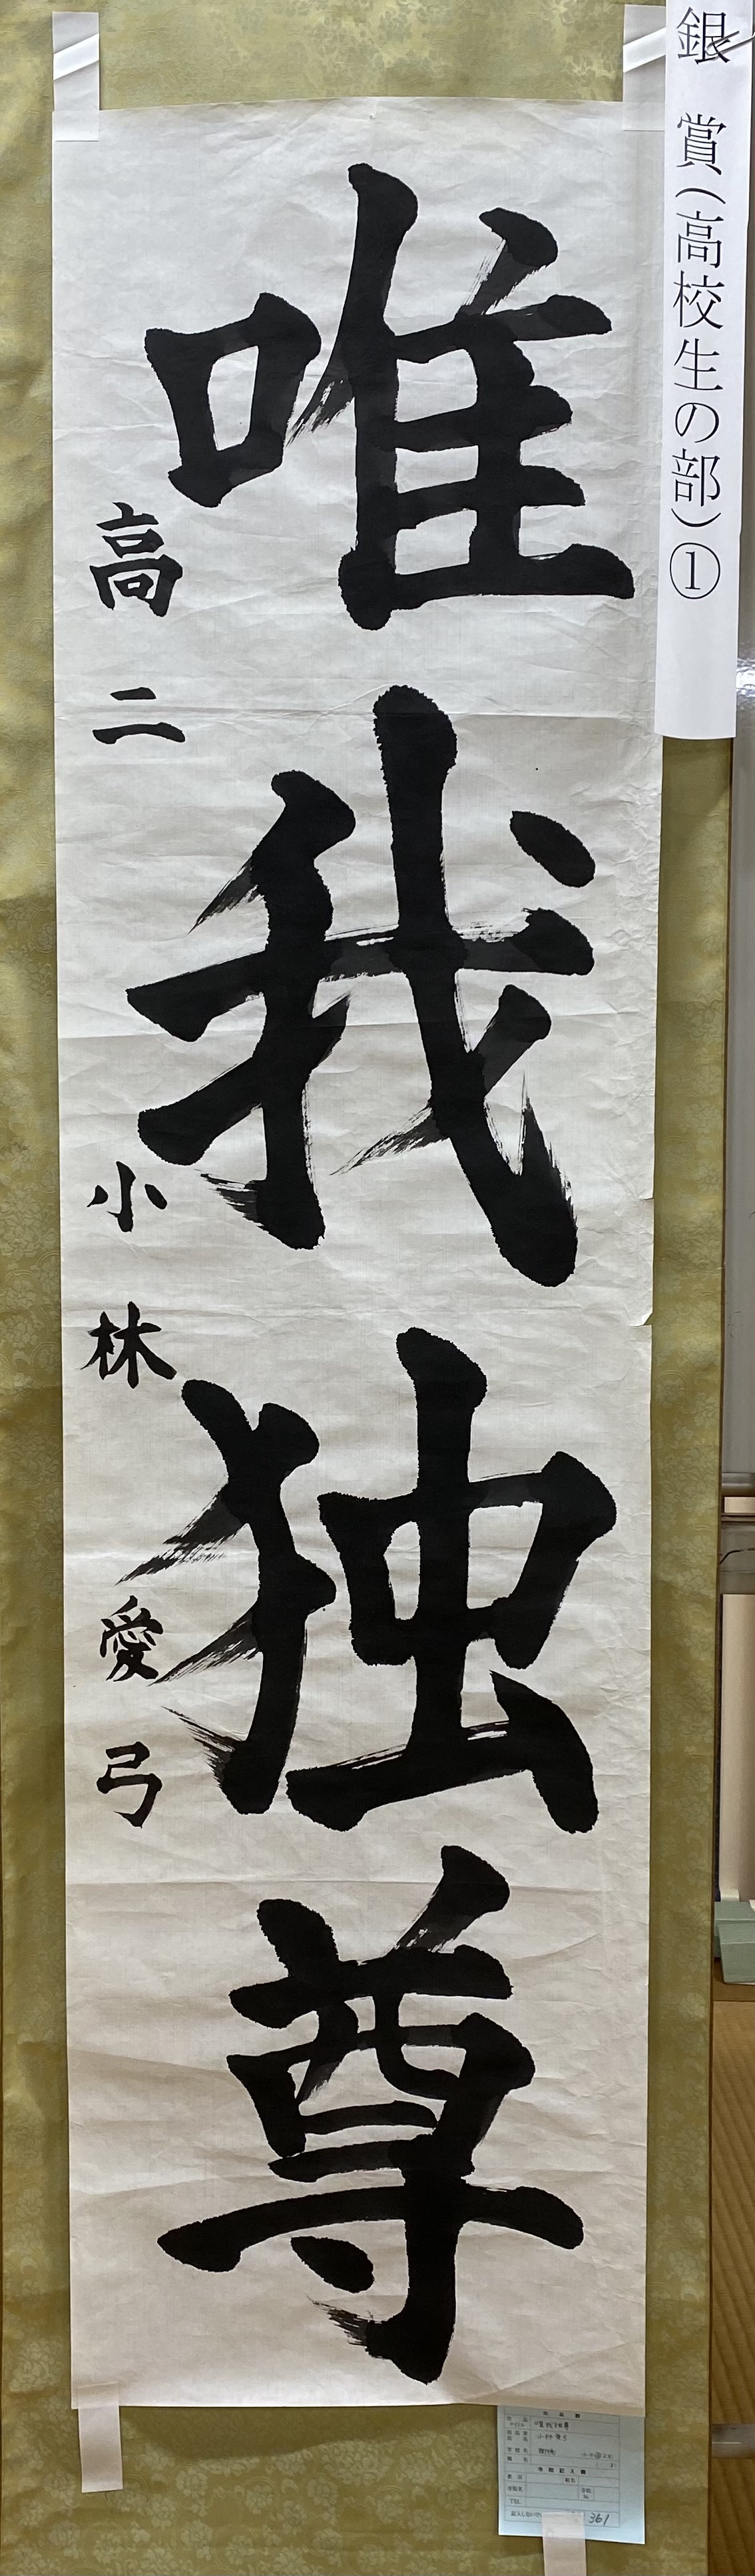 銀 賞(高校生の部)①
唯我独尊
高二 小林愛弓
361